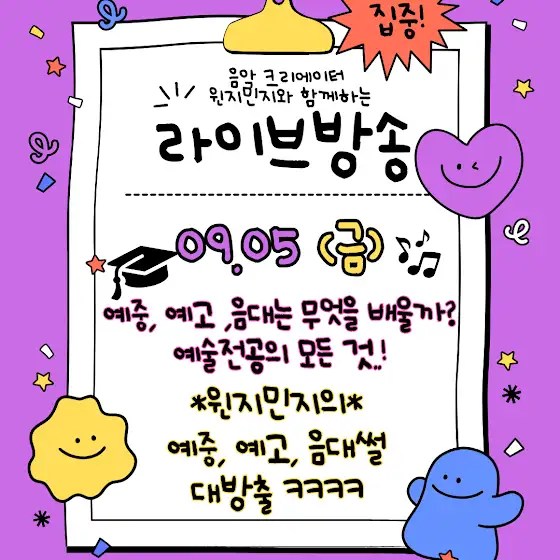 집중!
음악 크리에이터
원지민지와 함께하는
라이브방송
09.05 (금)
예중, 예고 ,음대는 무엇을 배울까?
예술전공의 모든 것..!
*원지민지의*
예중, 예고, 음대썰
대방출 ㅋㅋㅋㅋ